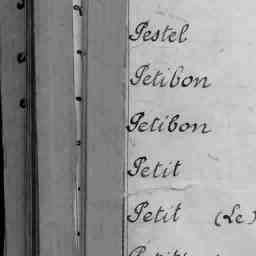 Pestel
Petibon
Petibon
Petit
Petit (Le)